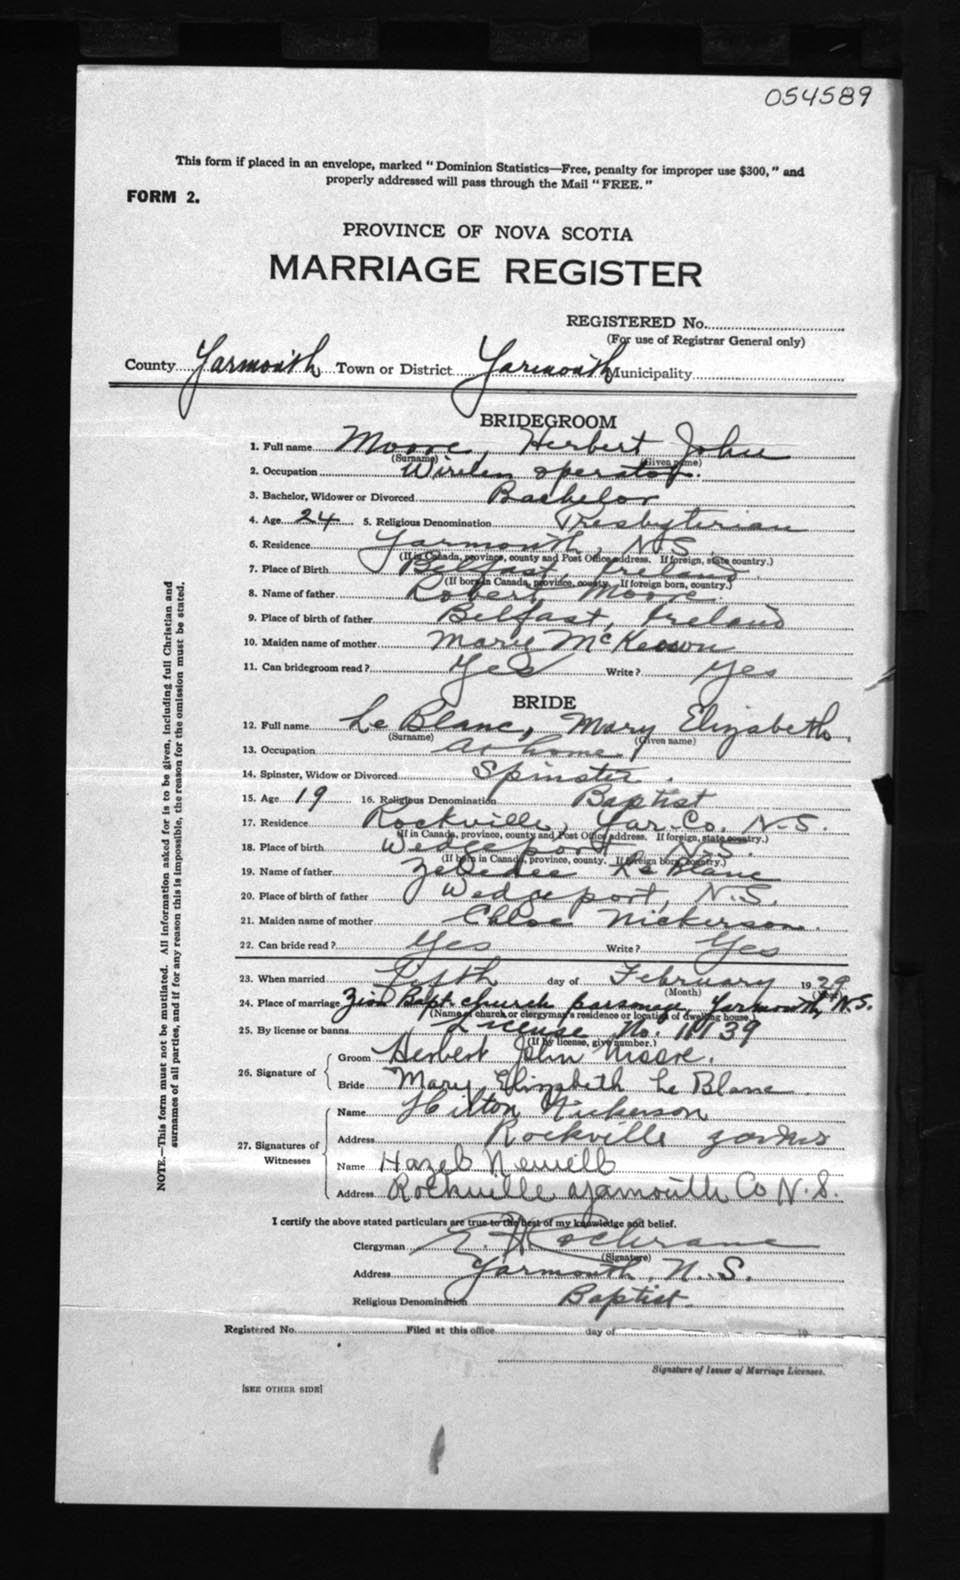 054589
This form if placed in an envelope, marked "Dominion Statistics—Free, penalty for improper use $300," and
properly addressed will pass through the Mail "FREE."
FORM 2.
PROVINCE OF NOVA SCOTIA
MARRIAGE REGISTER
REGISTERED No.
(For use of Registrar General only)
County Yarmouth Town or District Yarmouth Municipality
BRIDEGROOM
1. Full name Moore, Herbert John
(Surname) (Given name)
2. Occupation Wireless operator.
3. Bachelor, Widower or Divorced Bachelor
4. Age 24 5. Religious Denomination Presbyterian
6. Residence Yarmouth, N.S.
(If in Canada, province, county and Post Office address. If foreign, state country.)
7. Place of Birth Belfast, Ireland
(If born in Canada, province, county. If foreign born, country.)
8. Name of father Robert Moore.
9. Place of birth of father Belfast, Ireland
10. Maiden name of mother Mary McKeown
11. Can bridegroom read? Yes Write? Yes
BRIDE
12. Full name Le Blanc, Mary Elizabeth
(Surname) (Given name)
13. Occupation At home
14. Spinster, Widow or Divorced Spinster.
15. Age 19 16. Religious Denomination Baptist
17. Residence Rockville, Yar. Co. N.S.
(If in Canada, province, county and Post Office address. If foreign, state country.)
18. Place of birth Wedgeport N.S.
(If born in Canada, province, county. If foreign born, country.)
19. Name of father Zebedee Le Blanc
20. Place of birth of father Wedgeport, N.S.
21. Maiden name of mother Chloe Nickerson.
22. Can bride read? Yes Write? Yes
23. When married Fifth day of February 1929
(Month)
24. Place of marriage Zion Bapt. church parsonage Yarmouth, N.S.
(Name of church or clergyman's residence or location of dwelling house.)
25. By license or banns License No. 11139
(If by license, give number.)
26. Signature of
Groom Herbert John Moore.
Bride Mary Elizabeth Le Blanc
27. Signatures of Witnesses
Name Hilton Nickerson
Address Rockville
Name Hazel Newell
Address Rockville Yarmouth Co N.S.
I certify the above stated particulars are true to the best of my knowledge and belief.
Clergyman Cochrane
(Signature)
Address Yarmouth, N.S.
Religious Denomination Baptist.
Registered No. Filed at this office day of 19
Signature of Issuer of Marriage Licenses.
[SEE OTHER SIDE]
NOTE.—This form must not be mutilated. All information asked for is to be given, including full Christian and
surnames of all parties, and if for any reason this is impossible, the reason for the omission must be stated.